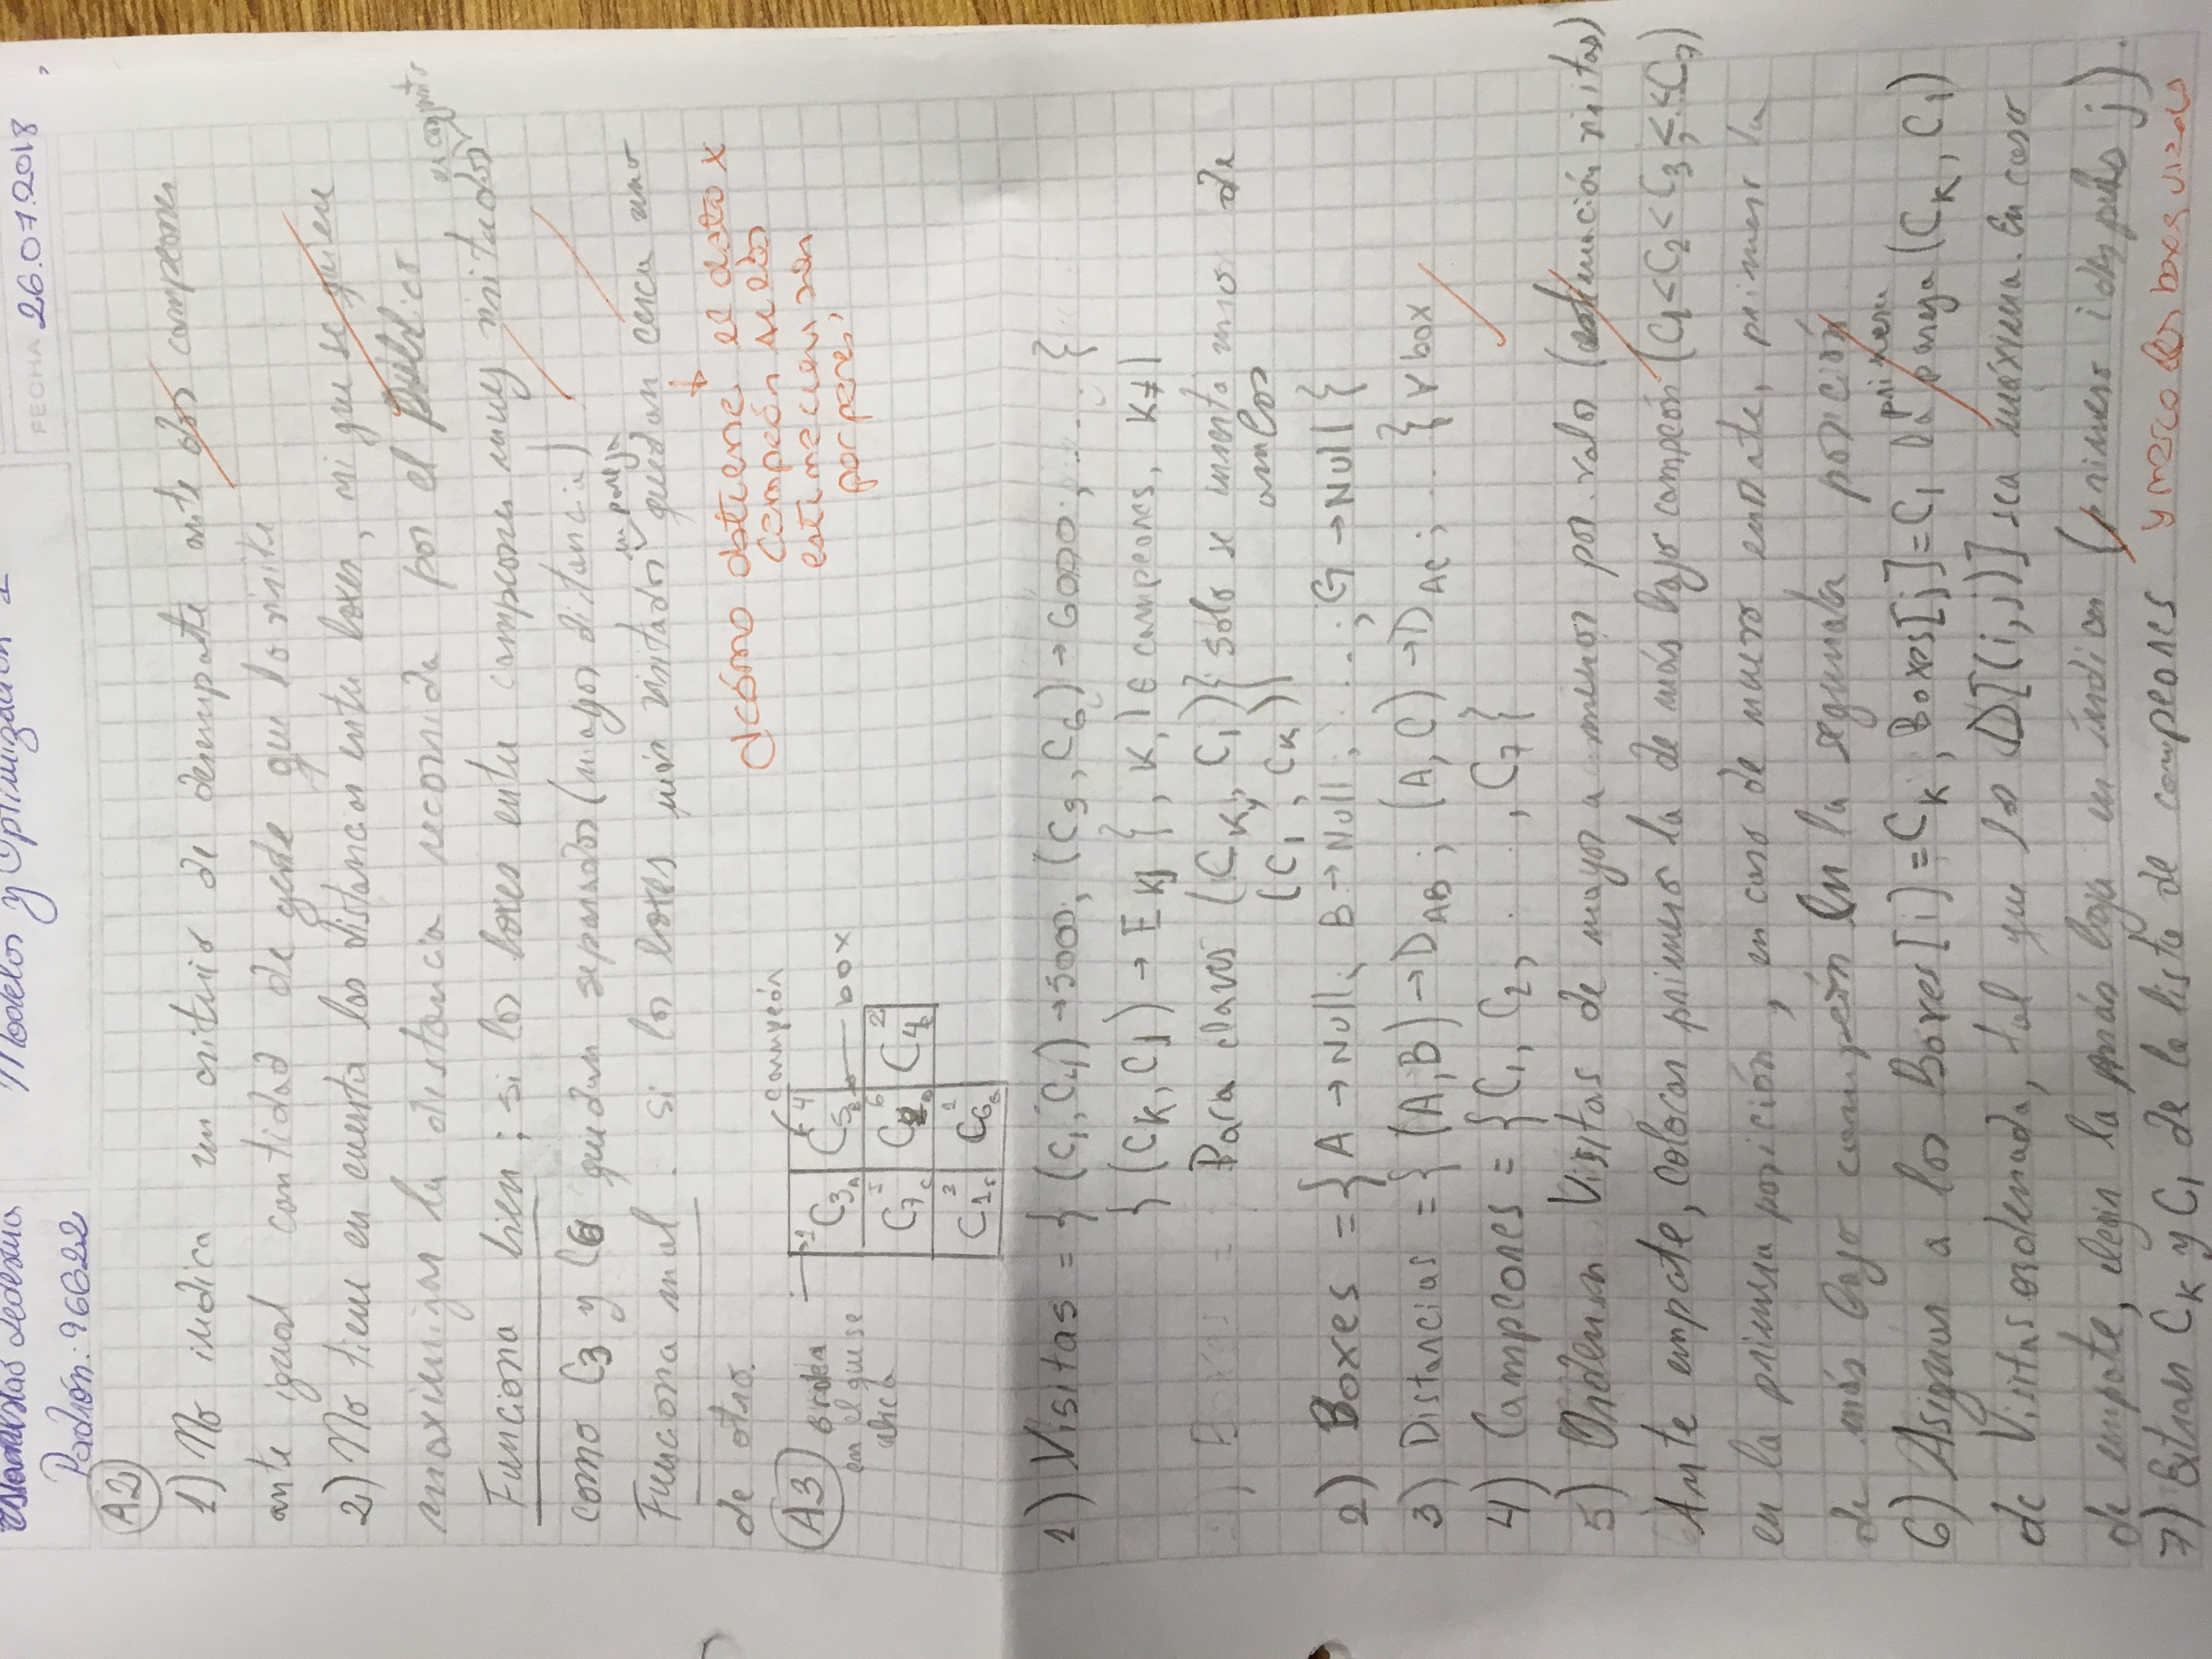 Estanislao Ledesma
Modelos y Optimización 1
FECHA 26.07.2018
Padrón: 96622
A2
1) No indica un criterio de desempate ante dos campeones
ante igual cantidad de gente que lo visite
2) No tiene en cuenta las distancias entre boxes, ni que se quiere
maximizar la distancia recorrida por el público
en conjunto
Funciona bien; si los boxes entre campeones muy visitados
como C3 y C6 quedan separados (mayor distancia)
en pareja
Funciona mal. si los boxes más visitados quedan cerca uno
de otro.
¿cómo obtiene el dato x
campeón si las
estimaciones son
por pares?
A3
orden
en el que se
ubica
campeón
box
1 C3 A
C5 4 B
C7 5 C
C2 6 D
C4 2 E
C1 3 F
C6 1 G
1) Visitas = { (C1, C4) → 5000; (C3, C6) → 6000; .... }
{ (CK, Cl) → EKl }, K, l ∈ campeones, K ≠ l
2) Boxes = Para claves (CK, Cl) } solo se inserta una de
(Cl, CK) ambos
2) Boxes = { A → Null; B → Null; ....; G → Null }
3) Distancias = { (A,B) → DAB; (A, C) → DAC; ... } ∀ box
4) Campeones = { C1, C2, ...., C7 }
5) Ordenar Visitas de mayor a menor por valor (estimación visitas)
Ante empate, colocar primero la de más bajo campeón (C1<C2<C3<..<C7)
en la primera posición, en caso de nuevo empate, primero la
de más bajo campeón en la segunda posición
primera
6) Asignar a los Boxes[i] = CK, Boxes[j] = Cl la pareja (CK, Cl)
de Visitas ordenada, tal que los D[(i,j)] sea máxima. En caso
de empate, elegir la más baja en índices (primero i después j).
7) Extraer CK y Cl de la lista de campeones y marco los boxes usados